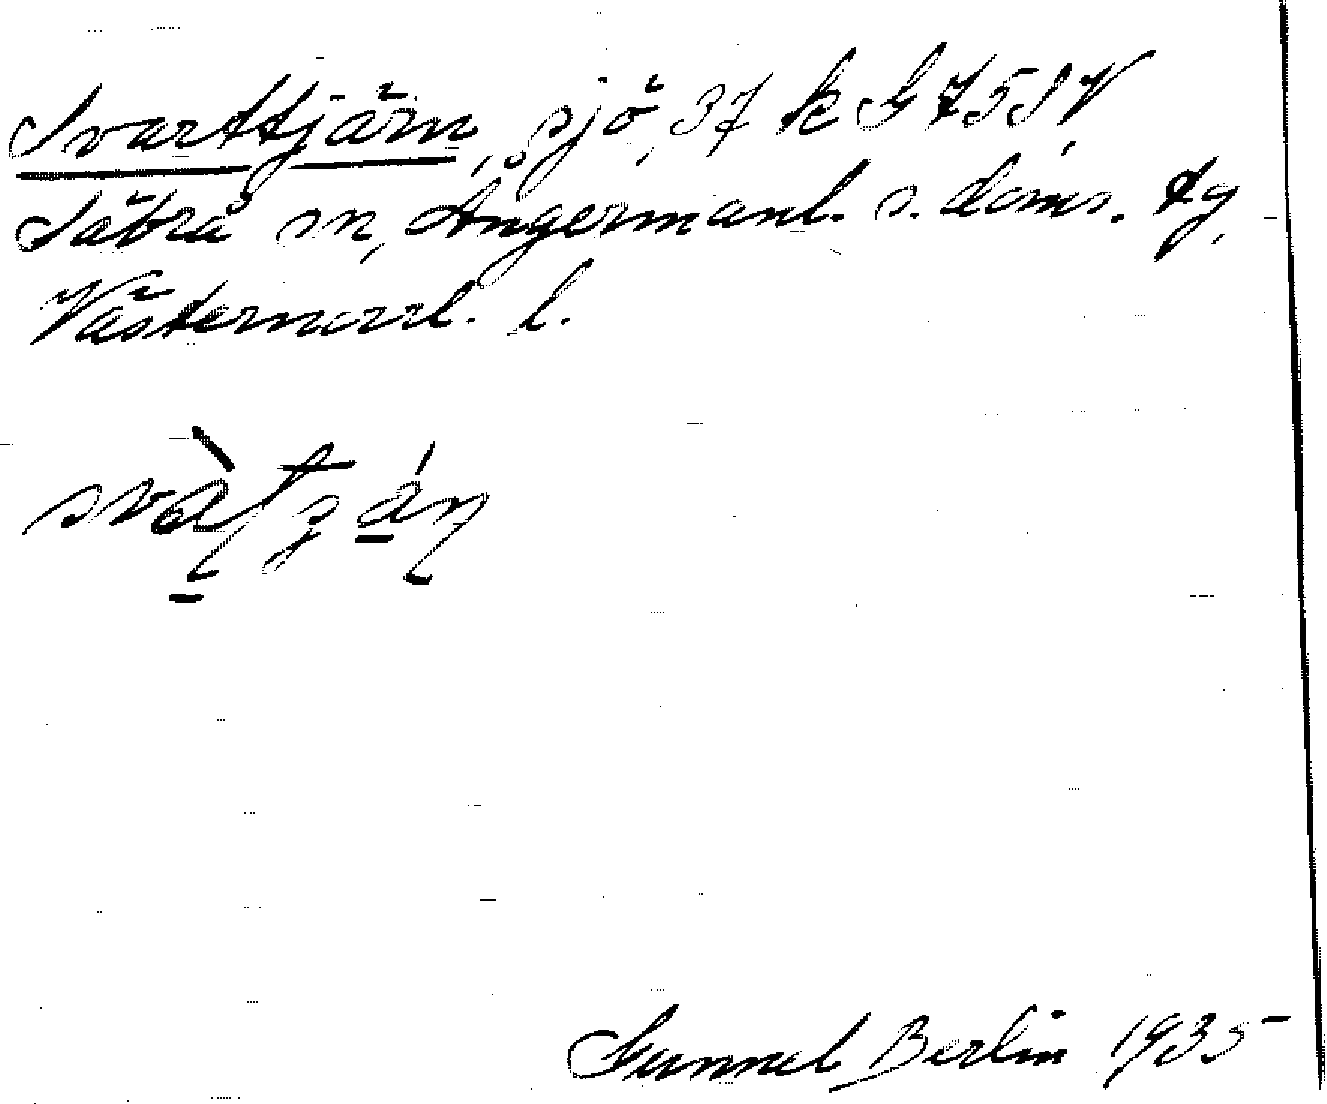 Svarttjärn, sjö, 37 k G 75 SV
Säbrå sn, Ångermanl. s. doms. tg,
Västernorrl. l.
Gunnel Berlin 1935